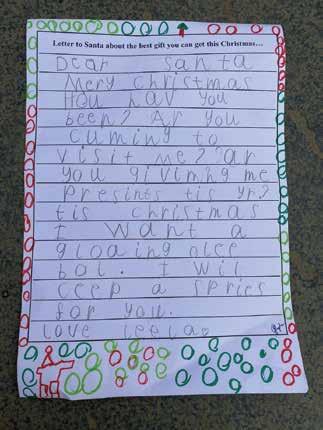 Letter to Santa about the best gift you can get this Christmas...
Dear Santa
Mery christmas
Hou hav you
been? Ar you
cuming to
visit me? ar
you givimhg me
presints tis yr?
tis christmas
I want a
gloaing nlee
bol. I wil
ceep a spries
for you.
love leela